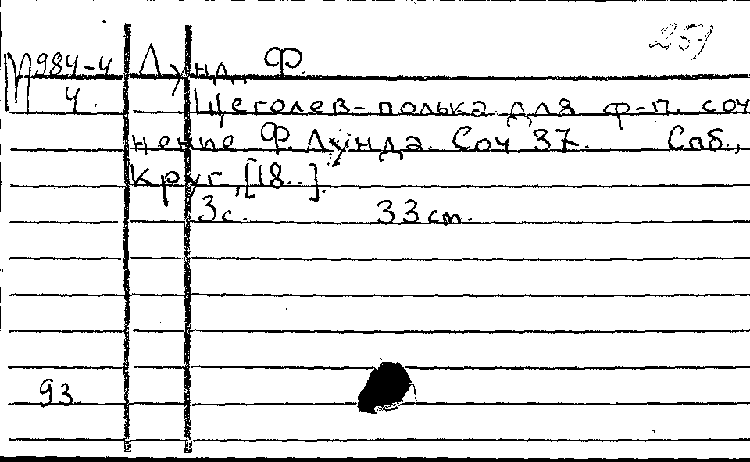 251
М 984-4 Лунд, Ф.
4. Щеголев-полька для ф-п. соч
нение Ф Лунда. Соч 37. Спб.,
Круг, [18..].
3с. 33 cm.
93